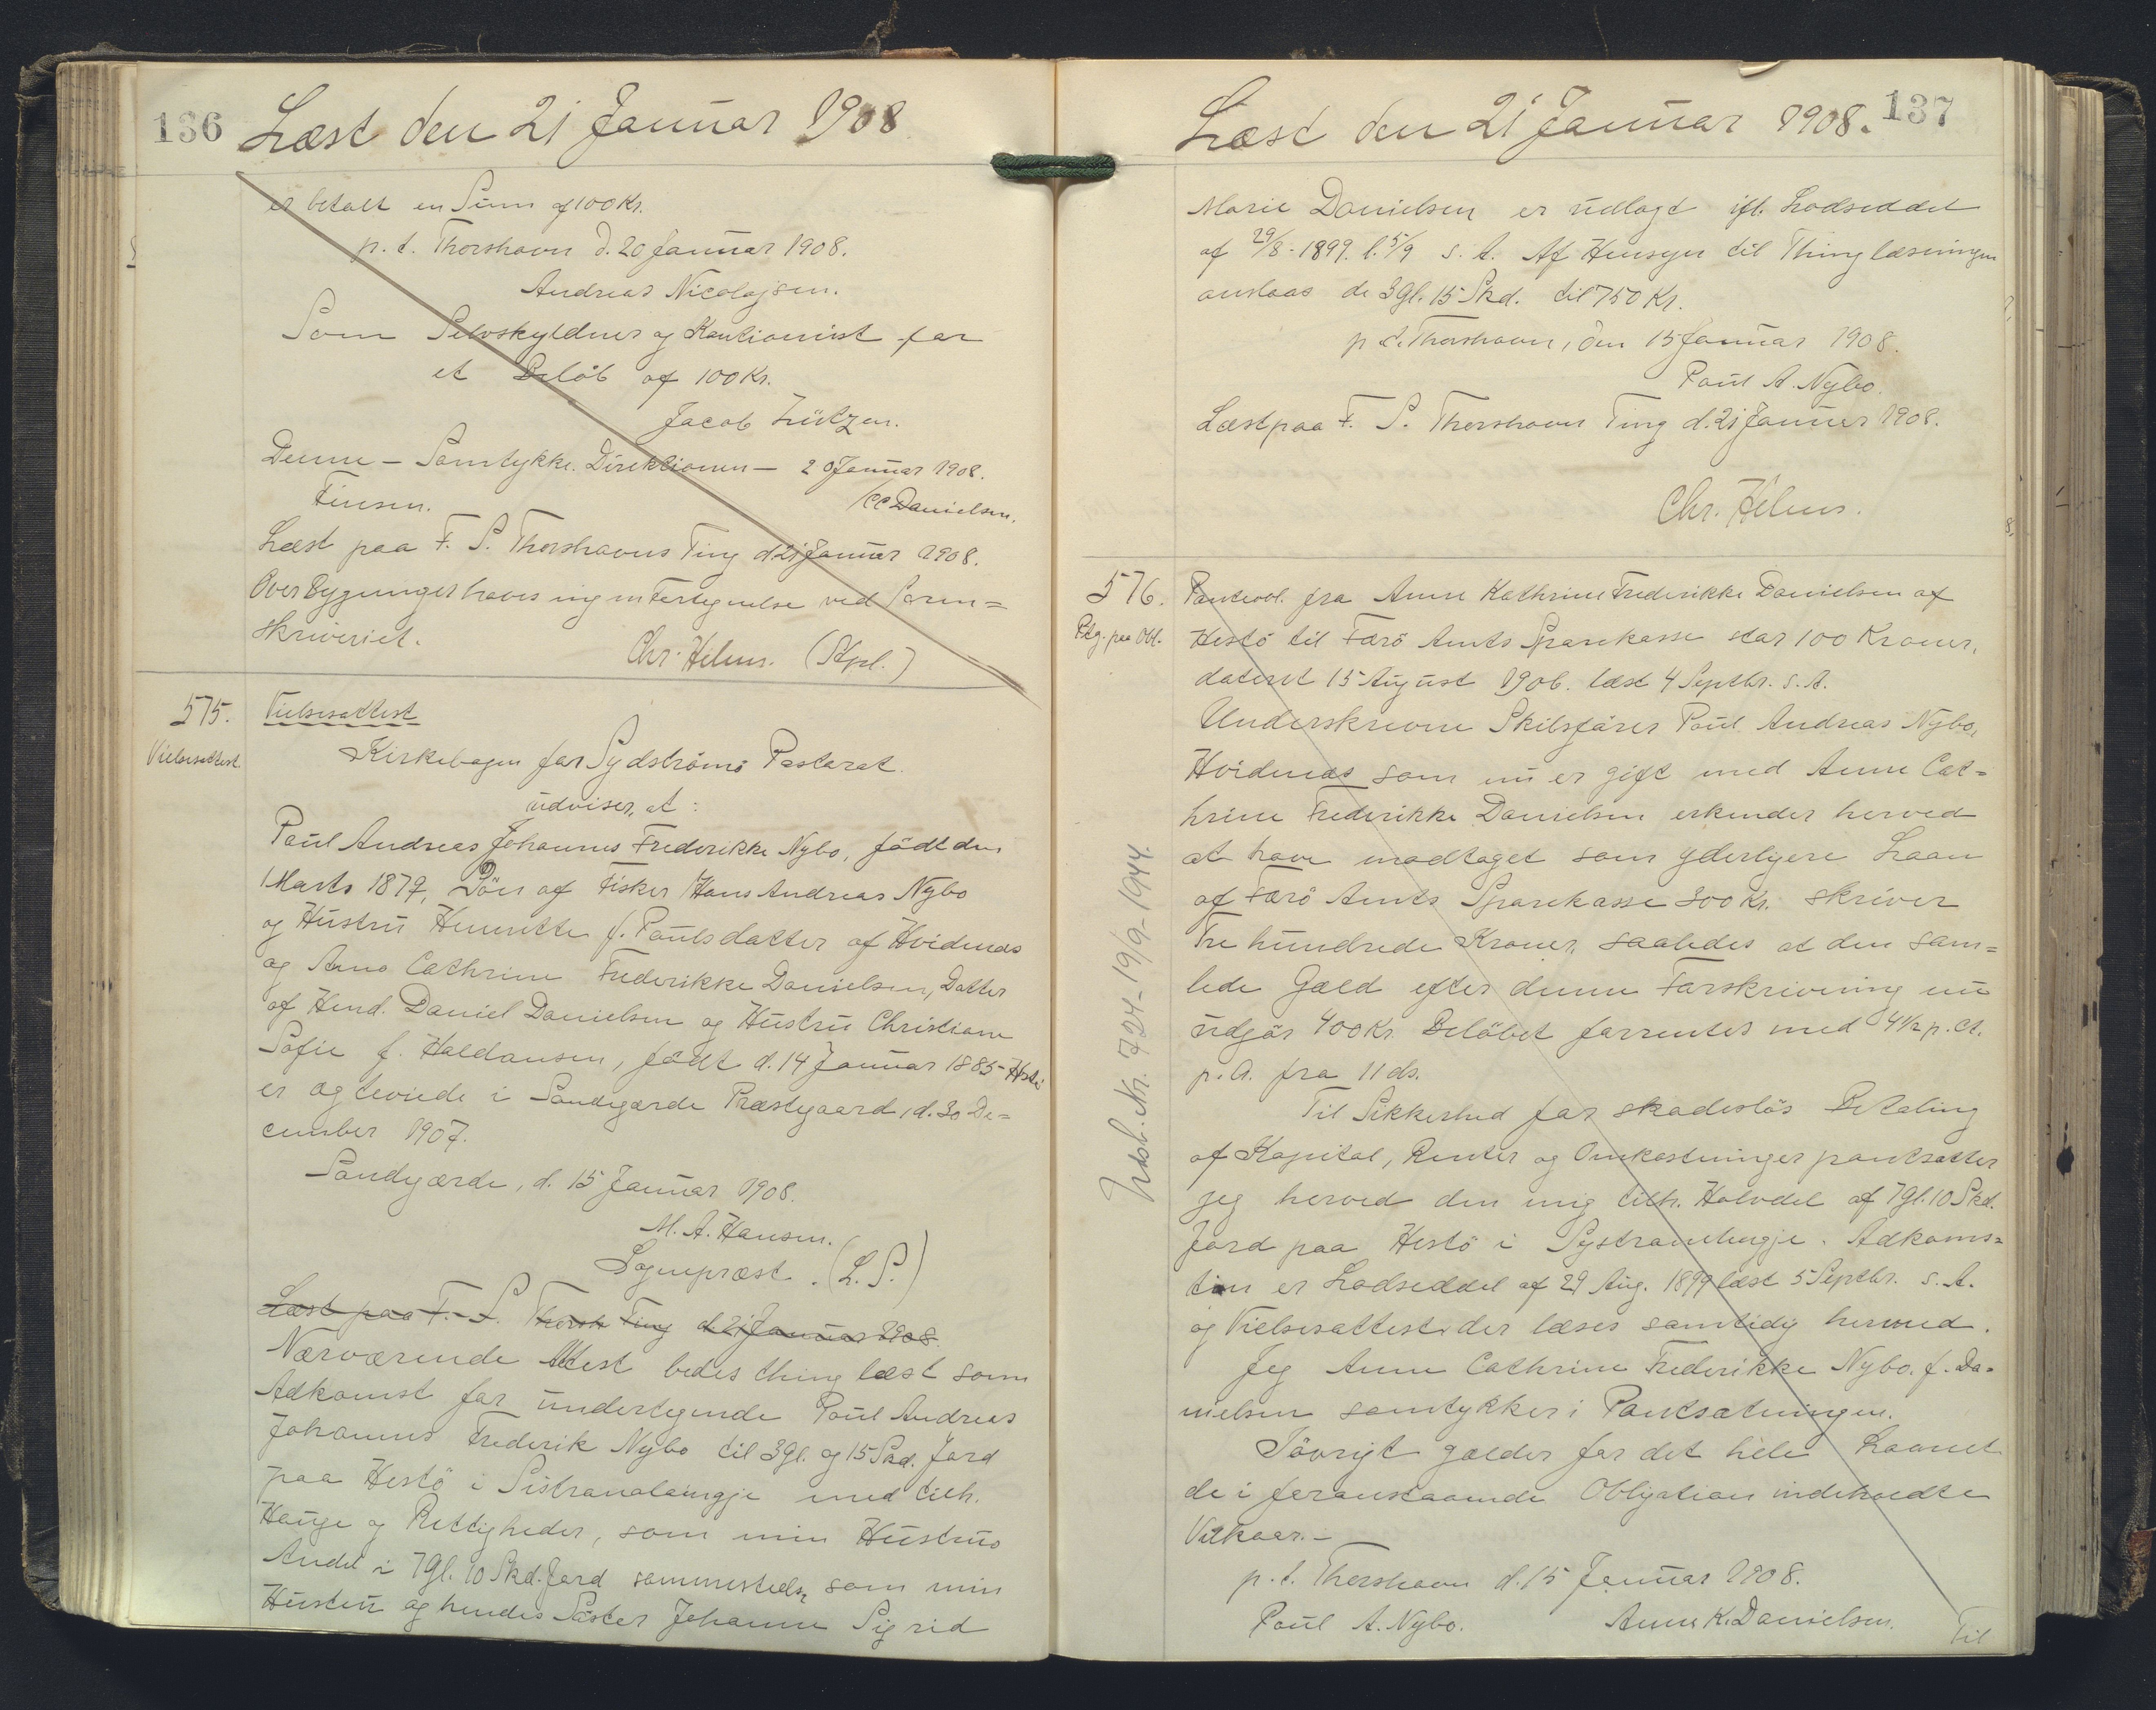 136 Læst den 21 Januar 1908
er betalt en Sum af 100 Kr.
p. t. Thorshavn d. 20 Januar 1908.
Andreas Nicolajsen.
Som Selvskyldner og Kautionist for
et Beløb af 100 Kr.
Jacob Lützen.
Denne – Samtykke. Direktionen – 20 Januar 1908.
Finsen. CC Danielsen.
Læst paa F. S. Thorshavns Ting d 21 Januar 1908.
Over Bygninger haves ingen Fortegnelse ved Soren=
skriveriet.
Chr. Helms. (Kpl.)
575. Vielsesattest
Vielsesattest.
Kirkebogen for Sydstrømø Pastorat
udviser, at:
Paul Andreas Johannes Frederikke Nybo, födt den
1 Marts 1879, Sön af Fisker Hans Andreas Nybo
og Hustru Henriette f. Poulsdatter af Hvidenæs
og Anna Cathrine Frederikke Danielsen, Datter
af Hmd. Daniel Danielsen og Hustru Christiane
Sofie f. Haldansen, födt d. 14 Januar 1885 Hestö
er ægteviede i Sandegærde Præstegaard, d. 30 De=
cember 1907.
Sandegærde, d. 15 Januar 1908.
M. A. Hansen.
Sognepræst. (L. S.)
Læst paa F. S. Thorsh Ting d. 21 Januar 1908.
Nærværende Attest bedes thinglæst som
Adkomst for undertegnede Poul Andreas
Johannes Frederik Nybo til 3 Gl. og 15 Skd. Jord
paa Hestö i Sistranalaingje med tilh.
Hauge og Rettigheder, som min Hustrus
Andel i 7 Gl. 10 Skd. Jord sammesteds, som min
Hustru og hendes Söster Johanne Sigrid
Læst den 21 Januar 1908. 137
Marie Danielsen er udlagt ifl. Lodseddel
af 29/8-1899. l. 5/9 s. A. Af Hensyn til Thinglæsningen
anslaas de 3 Gl. 15 Skd. til 750 Kr.
p. t. Thorshavn, den 15 Januar 1908.
Paul A. Nybo.
Læst paa F. S. Thorshavns Ting d. 21 Januar 1908.
Chr. Helms.
576. Panteobl. fra Anne Kathrine Frederikke Danielsen af
Ptg. paa Obl. Hestö til Færö Amts Sparekasse stor 100 Kroner,
dateret 15 August 1906. læst 4 Septbr. s. A.
Underskrevne Skibsförer Poul Andreas Nybo,
Hvidenæs som nu er gift med Anne Cat=
hrine Frederikke Danielsen erkender herved
at have modtaget som yderligere Laan
af Færö Amts Sparekasse 300 Kr. skriver
Tre hundrede Kroner, saaledes at den sam=
lede Gæld efter denne Forskrivning nu
udgör 400 Kr. Belöbet forrentes med 4½ p. Ct.
p. A. fra 11 ds.
Til Sikkerhed for skadeslös Betaling
af Kapital, Renter og Omkostninger pantsætter
jeg herved den mig tilh. Halvdel af 7 Gl. 10 Skd.
Jord paa Hestö i Systranhengje. Adkoms=
ten er Lodseddel af 29 Aug. 1899 læst 5 Septbr. s. A.
og Vielsesattest der læses samtidig hermed.
Jeg Anne Cathrine Frederikke Nybo, f. Da=
nielsen samtykker i Pantsætningen.
Iövrigt gælder for det hele Laanet
de i foranstaaende Obligation indeholdte
Vilkaar.–
p. t. Thorshavn d. 15 Januar 1908.
Poul A. Nybo. Anne K. Danielsen.
Til
Indb. Nr. 724-19/9-1944.